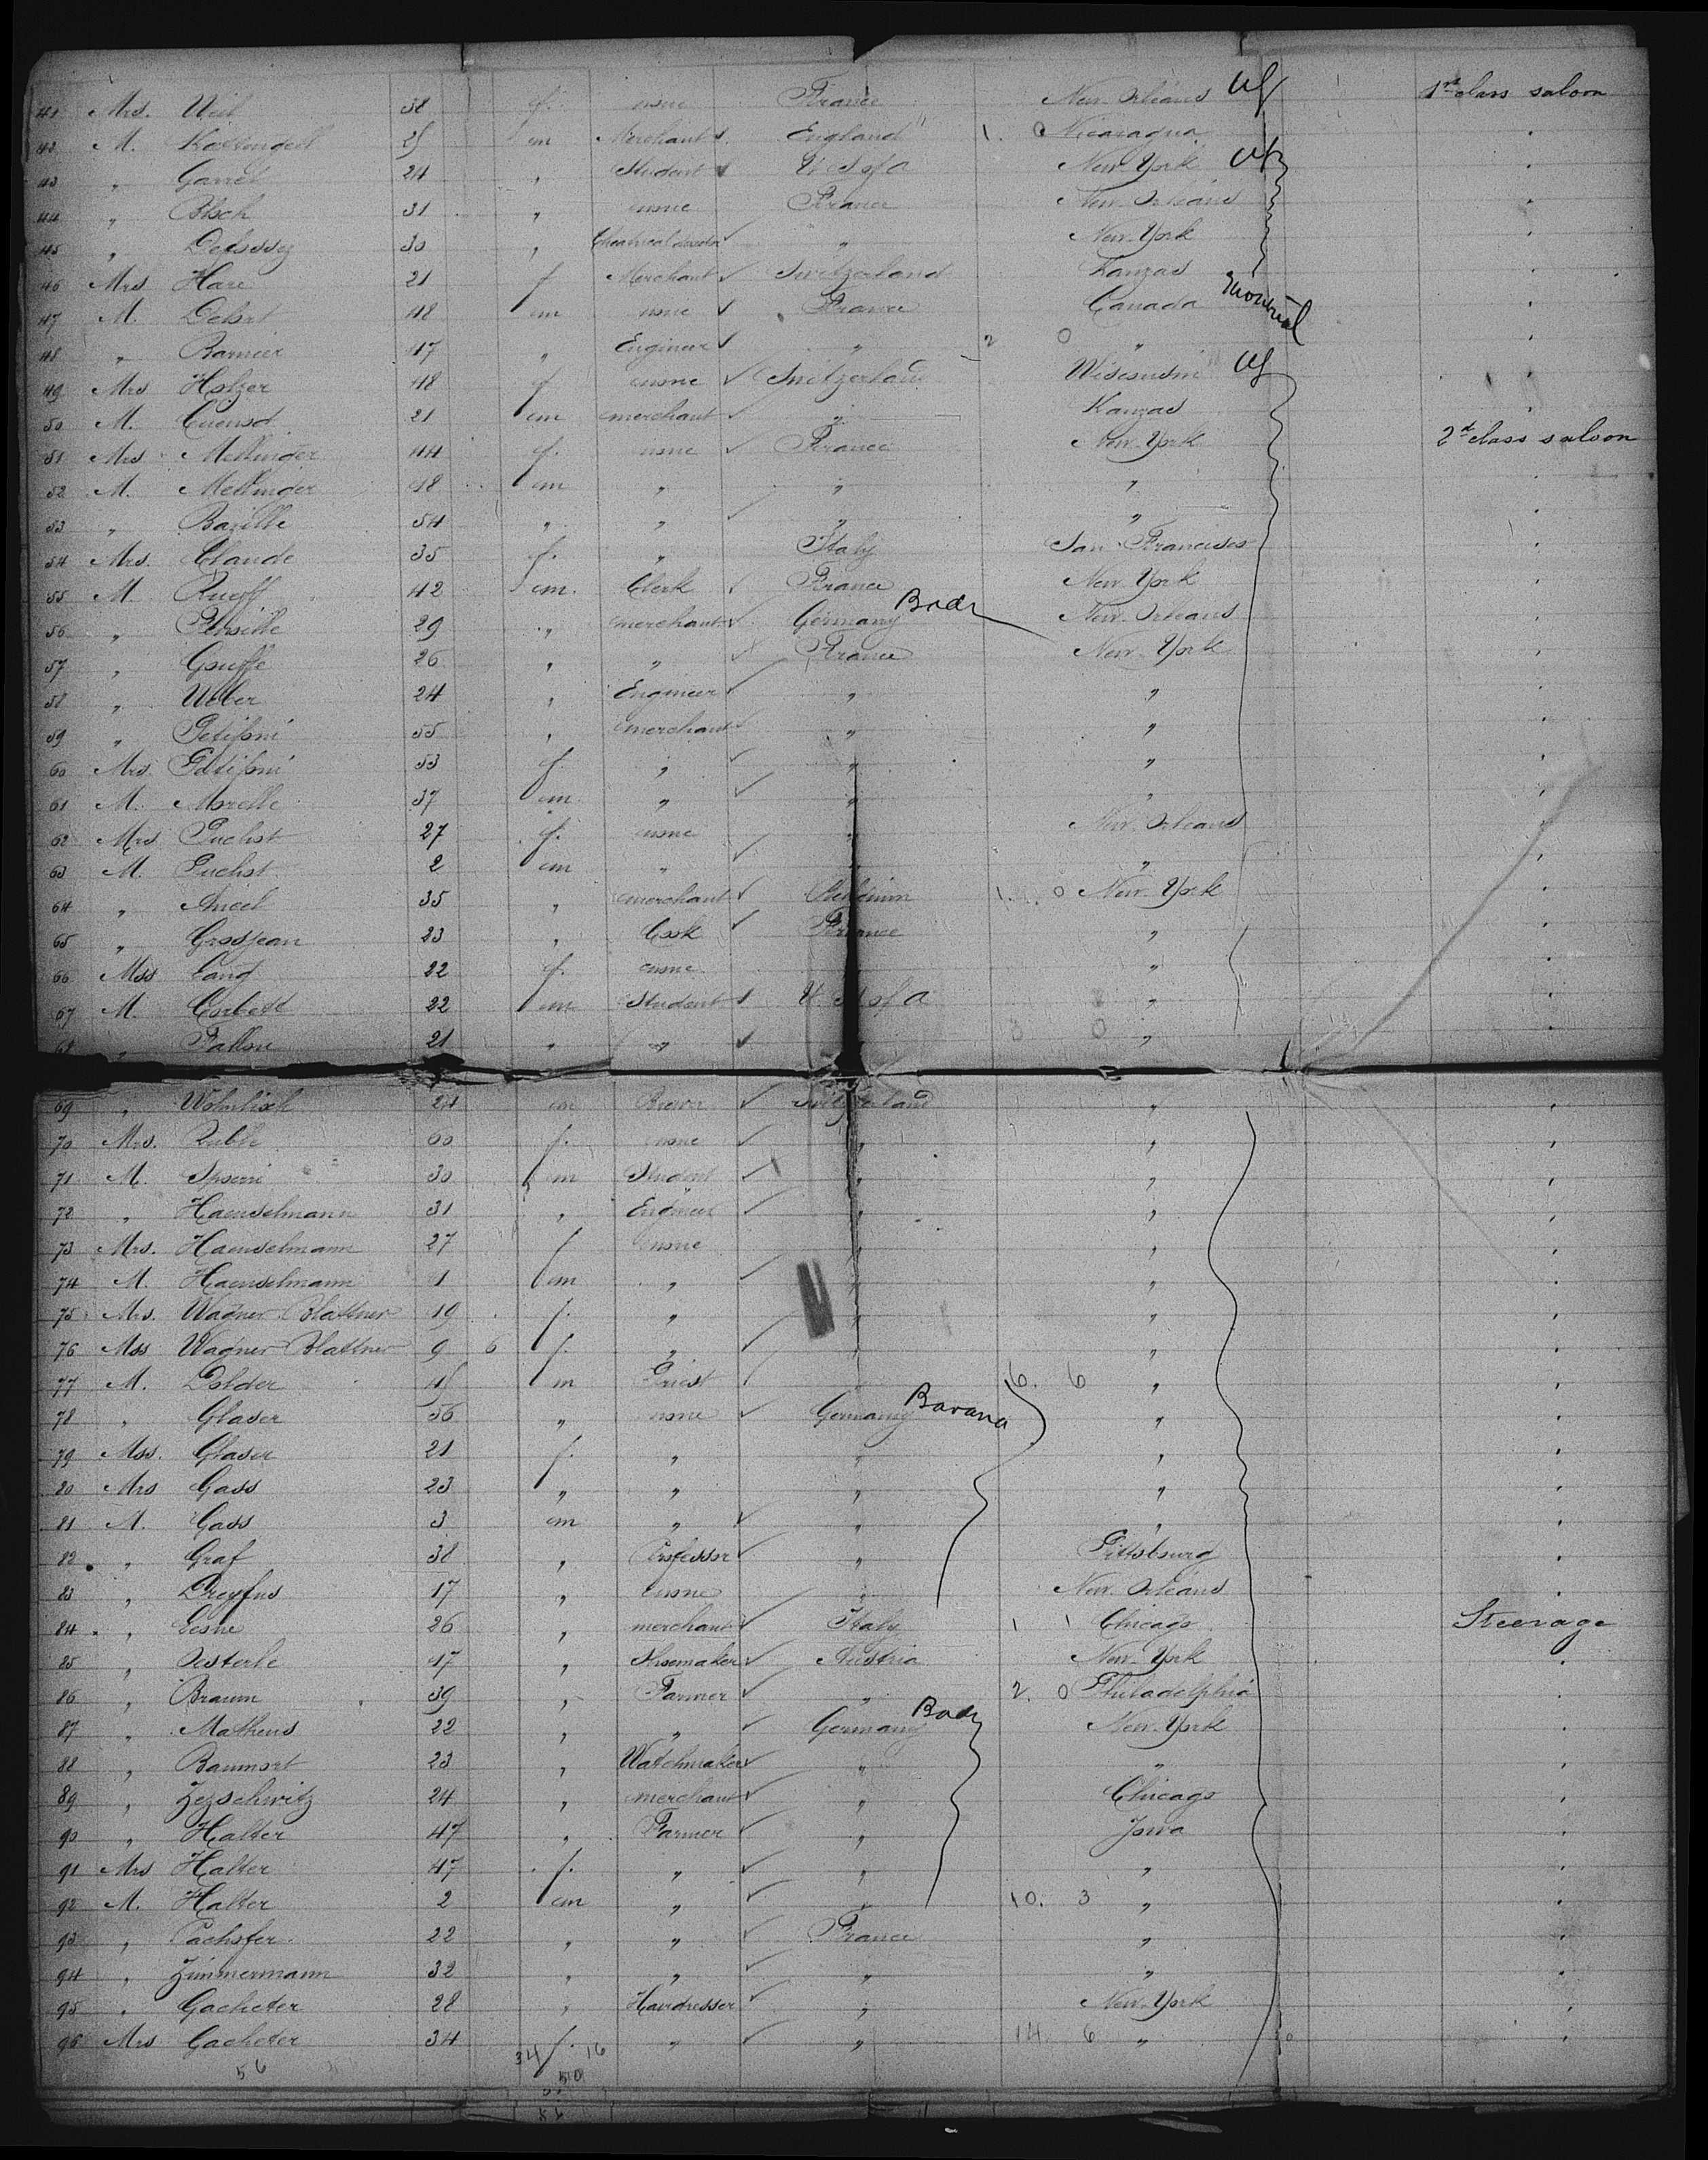 41 Mrs. Weil 38 f. none France New Orleans uf 1st class saloon
42 M. m Merchant England 1. 0 Nicaragua "
43 " 24 " Student U S of A New York uf "
44 " Bloch 31 " none France New Orleans "
45 " 30 " " New York "
46 Mrs Hare 21 f Merchant Switzerland Kanzas "
47 M. 48 m none France Canada Montreal "
48 " 47 " Engineer " 2 0 " "
49 Mrs Holzer 48 f. none Switzerland Wisconsin uf "
50 M. 21 m merchant " Kanzas "
51 Mrs Mellinger 44 f. none France New York 2d class saloon
52 M. Mellinger 18 m " " " "
53 " Bazille 54 " " " " "
54 Mrs. Claude 35 f. " Italy San Francisco "
55 M. Rueff 42 m. Clerk France New York "
56 " 29 " merchant Germany Bade New Orleans "
57 " Gouffé 26 " " France New York "
58 " Weber 24 " Engineer " " "
59 " 55 " merchant " " "
60 Mrs 53 f " " " "
61 M. Morelle 37 m " " " "
62 Mrs 27 f. none " New Orleans "
63 M. 2 m " " " "
64 " Ancel 35 " merchant 1. 0 New York "
65 " Grosjean 23 " Cook France " "
66 Mss Lang 22 f. none " "
67 M. Corbett 22 m Student U. S of A " "
68 " Fallon 21 " " 0 0 " "
69 " 24 m Switzerland " "
70 Mrs. 60 f. none " " "
71 M. Spoerri 30 m Student " " "
72 " Haenselmann 31 " Engineer " " "
73 Mrs. Haenselmann 27 f none " " "
74 M. Haenselmann 1 m " " " "
75 Mrs. Wagner-Blattner 19 f. " " " "
76 Mss Wagner-Blattner 9 6 f. " " " "
77 M. Dolder 45 m Priest 6. 6 " "
78 " Glaser 56 " none Germany Bavaria " "
79 Mss. Glaser 21 f. " " " "
80 Mrs Gass 23 " " " " "
81 M. Gass 3 m " " " "
82 " Graf 38 " Professor " Pittsburg "
83 " Dreyfus 17 " none " New Orleans "
84 " 26 " merchant Italy 1 1 Chicago Steerage
85 " Oesterle 17 " Shoemaker Austria New York "
86 " Braun 39 " Farmer " 2. 0 Philadelphia "
87 " Matheus 22 " " Germany Bade New York "
88 " Baumort 23 " Watchmaker " " "
89 " Zezschwitz 24 " merchant " Chicago "
90 " Halter 47 " Farmer " Iowa "
91 Mrs Halter 47 f. " " " "
92 M. Halter 2 m " " 10. 3 " "
93 " 22 " " France " "
94 " Zimmermann 32 " " " " "
95 " Gacheter 28 " Hairdresser " New York "
96 Mrs Gacheter 34 f. " " 14. 6 " "
56 34 16
50